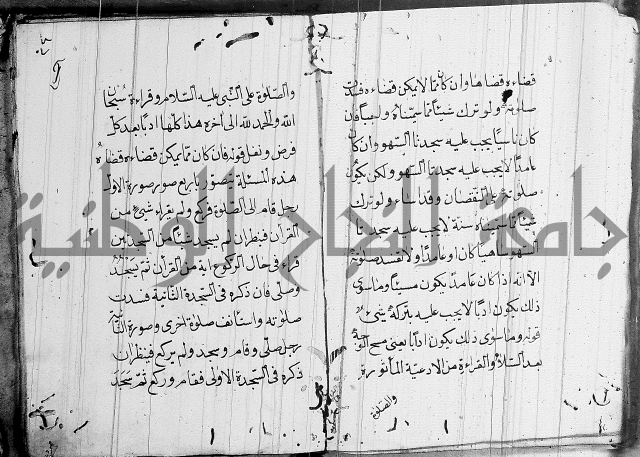 قضاءه قضاها وان كان ممّا لا يمكن قضاءه فسدت
صلوته ولو ترك شيئاً ممّا سمّيناه واجباً فان
كان ناسياً يجب عليه سجدتا السهو وان كان
عامداً لا يجب عليه سجدتا السهو ولكن يكون
صلوته على النقصان وقد اساء ولو ترك
شيئاً ممّا سميناه سنّة لا يجب عليه سجدتا
السهو ساهياً كان او عامداً ولا تفسد صلوته
الا انه اذا كان عامداً يكون مسيئاً وما سوى
ذلك يكون ادباً لا يجب عليه بتركه شيء
قوله وما سوى ذلك يكون ادباً يعنى مسح الوجه
بعد السلام والقراءة من الادعية المأثورة
والصلوة
والصلوة على النّبى عليه السّلام وقراءة سبحان
الله والحمد لله الى آخره هذا كلها ادباً بعد كل
فرض ونفل قوله فان كان ممّا يمكن قضاءه قضاه
هذه المسئلة يتصور باربع صور صورة الاولى
رجل قام الى الصّلوة فركع ولم يقراء شيئ من
القرآن فينظر ان لم يسجد شيئاً من السجدتين
قراء فى حال الركوع اية من القرآن ثمّ يسجد
وصلّى فان ذكره فى السّجدة الثّانية فسدت
صلوته واستأنف صلوة اخرى وصورة الثانية
رجل صلّى وقام وسجد ولم يركع فينظر ان
ذكره فى السّجدة الاولى فقام وركع ثمّ سجد
جامعة النجاح الوطنية